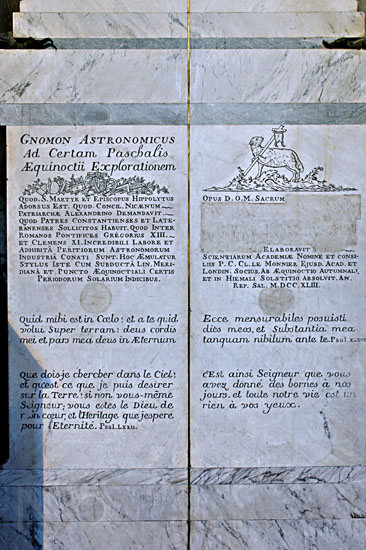 GNOMON ASTRONOMICUS
Ad Certam Paschalis
Æquinoctii Explorationem
QUOD. S. MARTYR ET EPISCOPUS HIPPOLYTUS
ADORSUS EST. QUOD. CONCIL. NICÆNUM
PATRIARCHÆ ALEXANDRINO DEMANDAVIT
QUOD PATRES CONSTANTIENSES ET LATE-
RANENSES SOLLICITOS HABUIT. QUOD INTER
ROMANOS PONTIFICES GREGORIUS XIII.
ET CLEMENS XI. INCREDIBILI LABORE ET
ADHIBITA PERITORUM ASTRONOMORUM
INDUSTRIA CONATI SUNT. HOC ÆMULATUR
STYLUS ISTE CUM SUBDUCTA LIN. MERI-
DIANA ET PUNCTO ÆQUINOCTIALI CERTIS
PERIODORUM SOLARIUM INDICIBUS.
Quid mihi est in Cœlo: et a te quid
volui Super terram: deus cordis
mei et pars mea deus in Æternum
Que dois-je chercher dans le Ciel:
et qu'est ce que je puis desirer
sur la Terre: si non vous-même
Seigneur, vous estes le Dieu de
mon cœur, et l'Heritage que j'espere
pour l'Eternité. Psal. LXXII.
OPUS D. O. M. SACRUM.
ELABORAVIT
SCIENTIARUM ACADEMIÆ NOMINE ET CONSI-
LIIS P. C. CL. LE MONNIER EJUSD. ACAD. ET
LONDIN. SOCIUS. AB ÆQUINOCTIO AUTUMNALI,
ET IN HIEMALI SOLSTITIO ABSOLVIT. AN.
REP. SAL. M. DCC. XLIII.
Ecce mensurabiles posuisti
dies meos, et Substantia mea
tanquam nihilum ante te.
C'est ainsi Seigneur que vous
avez donné des bornes à nos
jours. et toute notre vie est un
rien à vos yeux.